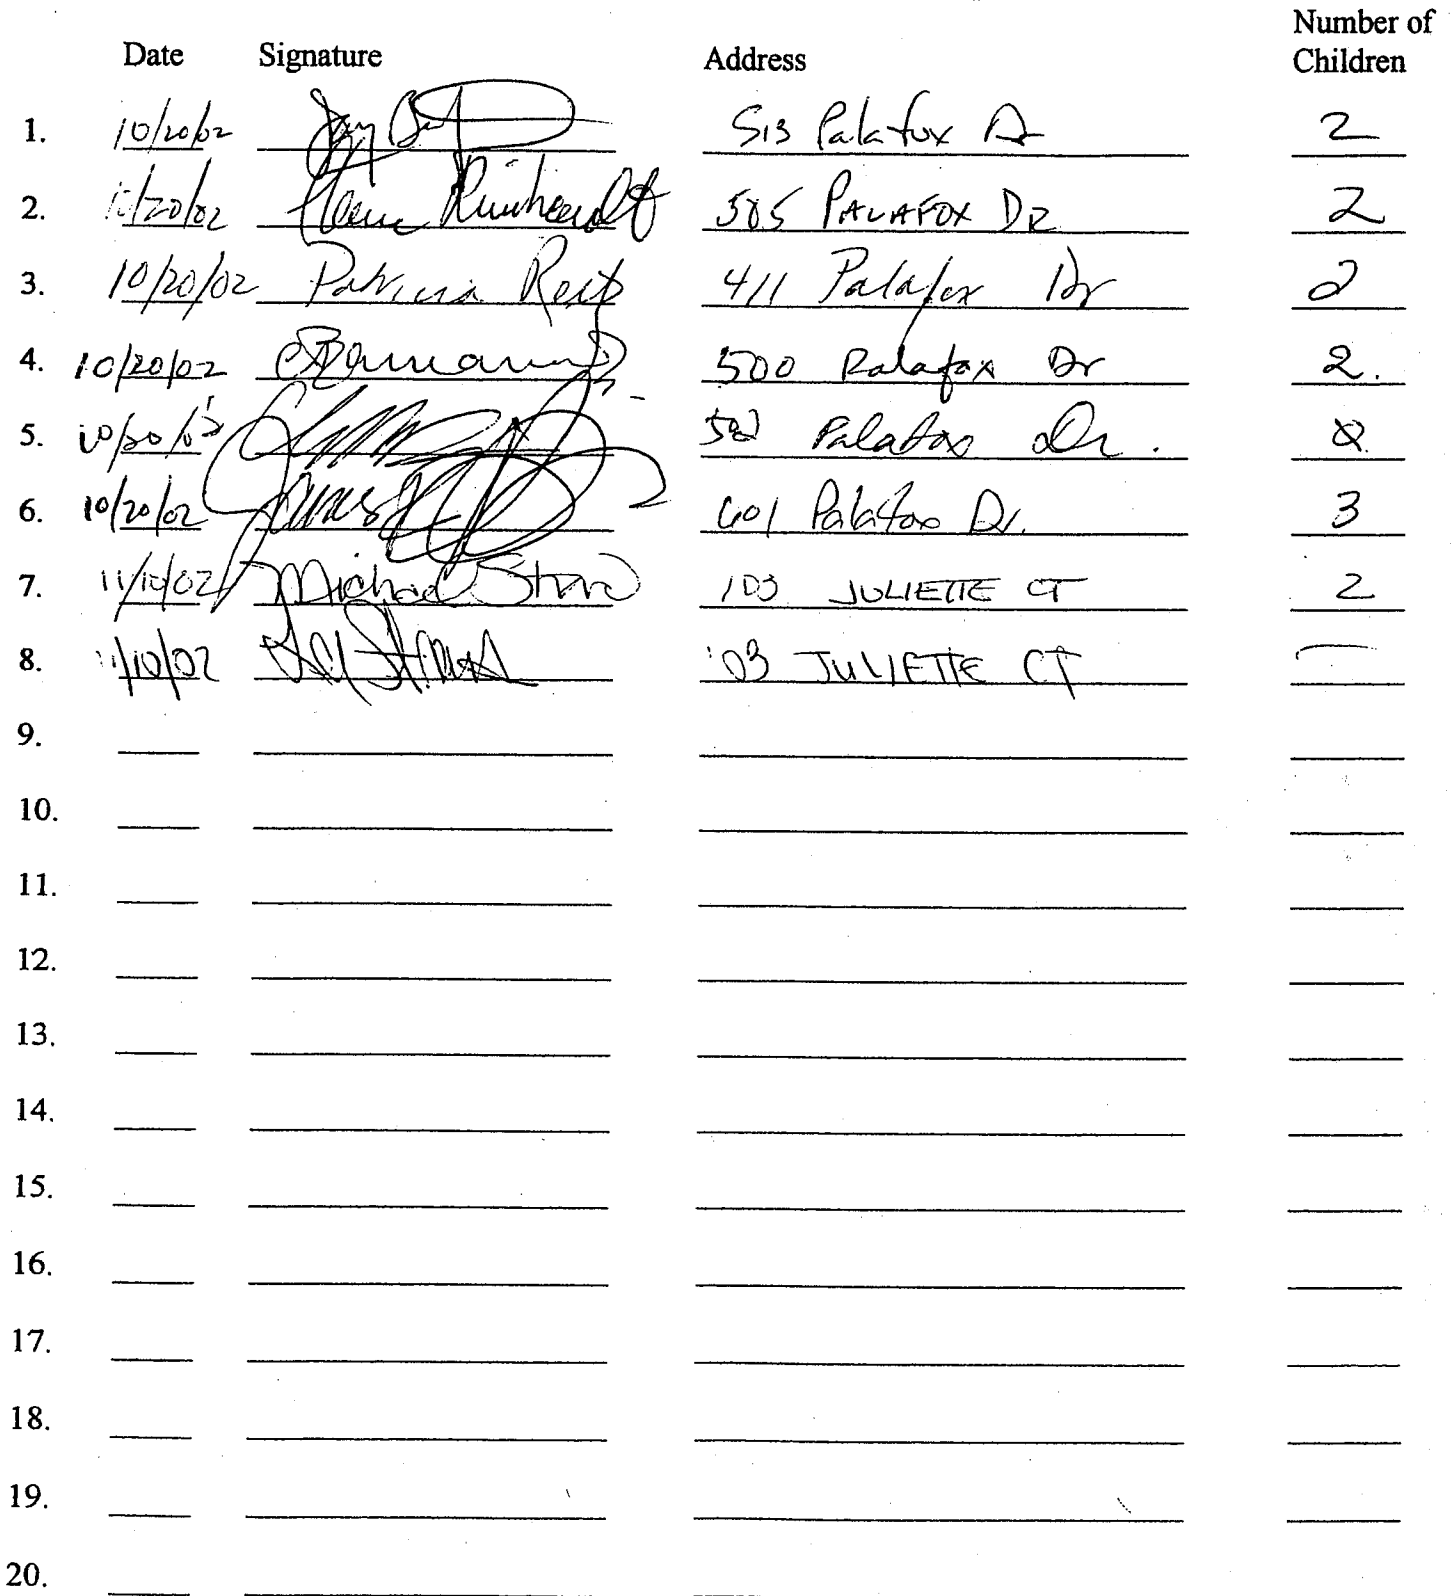 Number of
Date Signature Address Children
1. 10/20/02 513 Palafox Dr 2
2. 10/20/02 Reinhardt 505 PALAFOX DR 2
3. 10/20/02 Patricia 411 Palafox Dr 2
4. 10/20/02 500 Palafox Dr 2.
5. 10/20/02 502 Palafox Dr.
6. 10/20/02 James 601 Palafox Dr. 3
7. 11/10/02 Michael 103 JULIETTE CT 2
8. 11/10/02 103 JULIETTE CT —
9.
10.
11.
12.
13.
14.
15.
16.
17.
18.
19.
20.